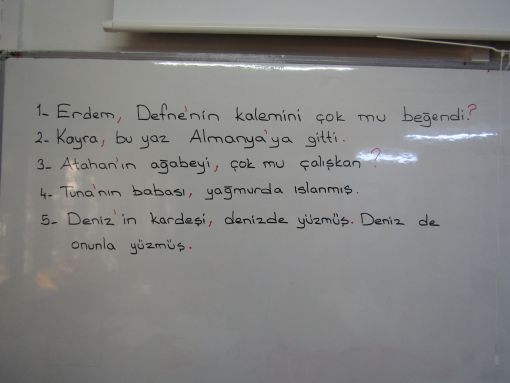 1- Erdem, Defne'nin kalemini çok mu beğendi?
2- Kayra, bu yaz Almanya'ya gitti.
3- Atahan'ın ağabeyi, çok mu çalışkan?
4- Tuna'nın babası, yağmurda ıslanmış.
5- Deniz'in kardeşi, denizde yüzmüş. Deniz de
onunla yüzmüş.